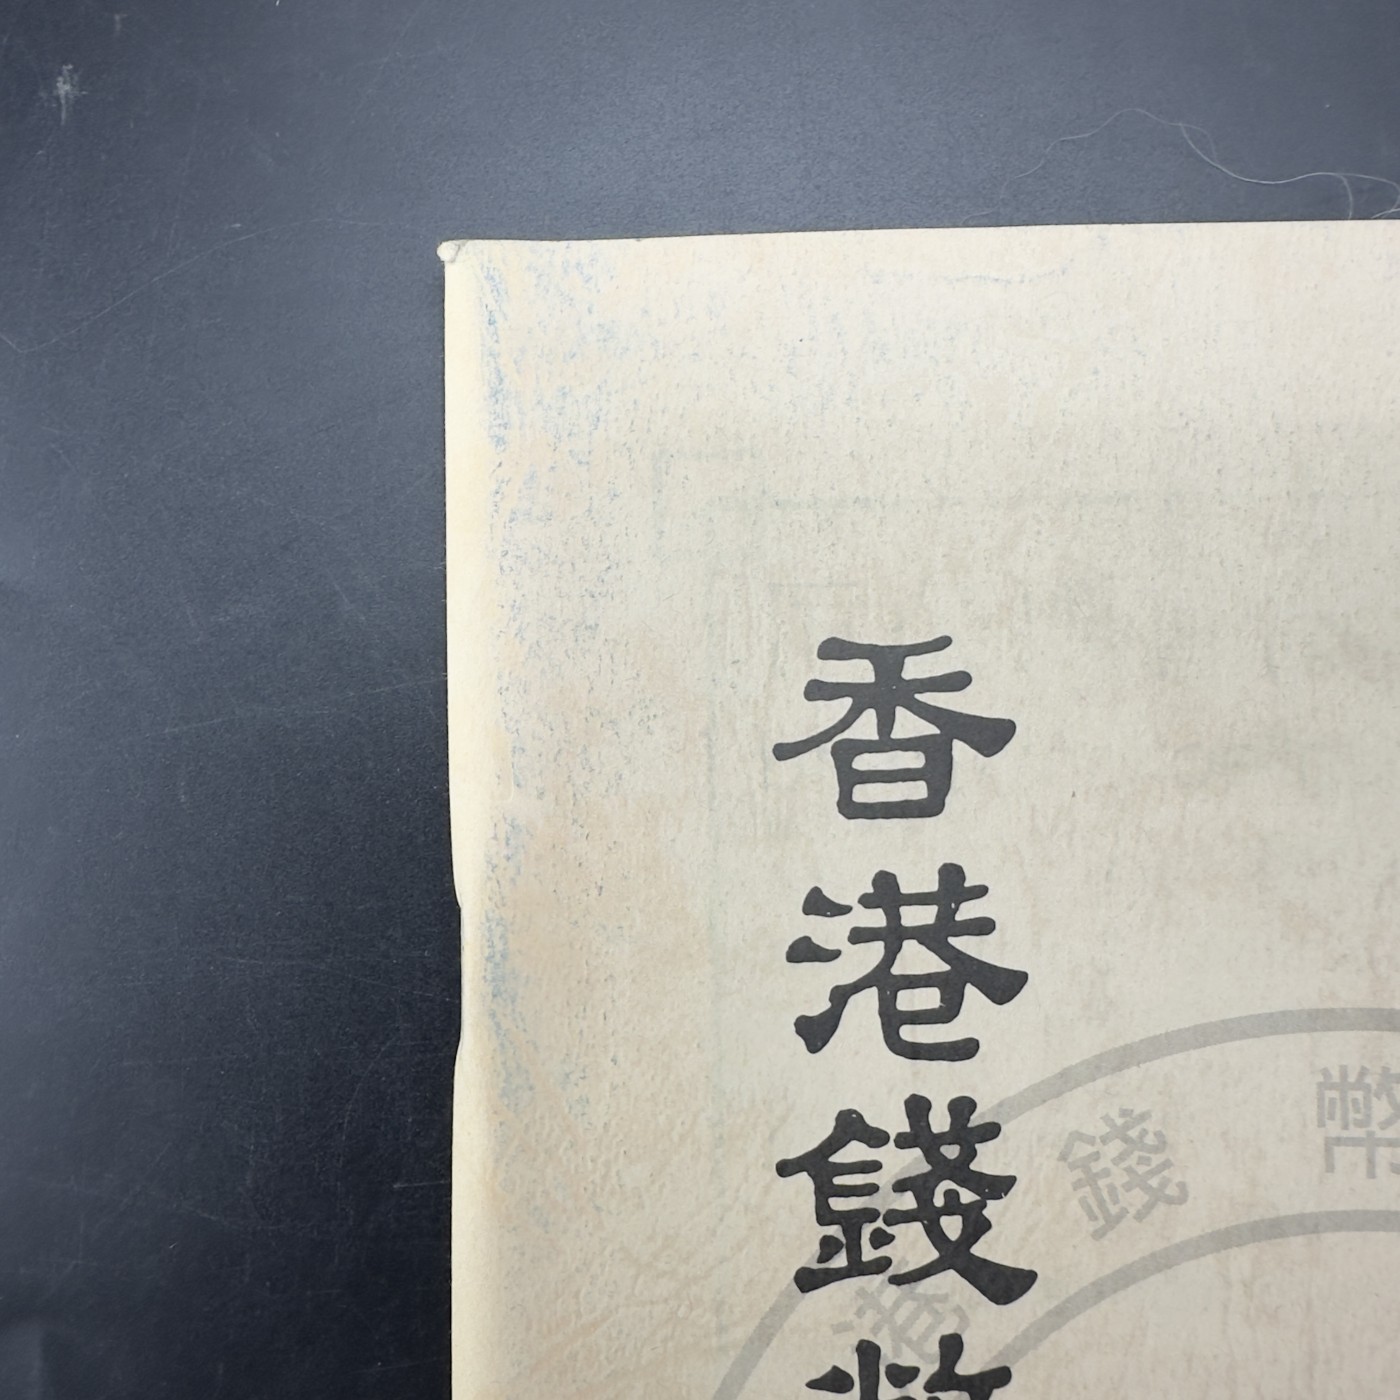 香港錢幣
港錢幣